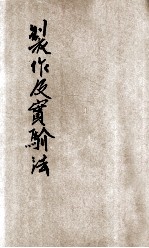 製作及實驗法